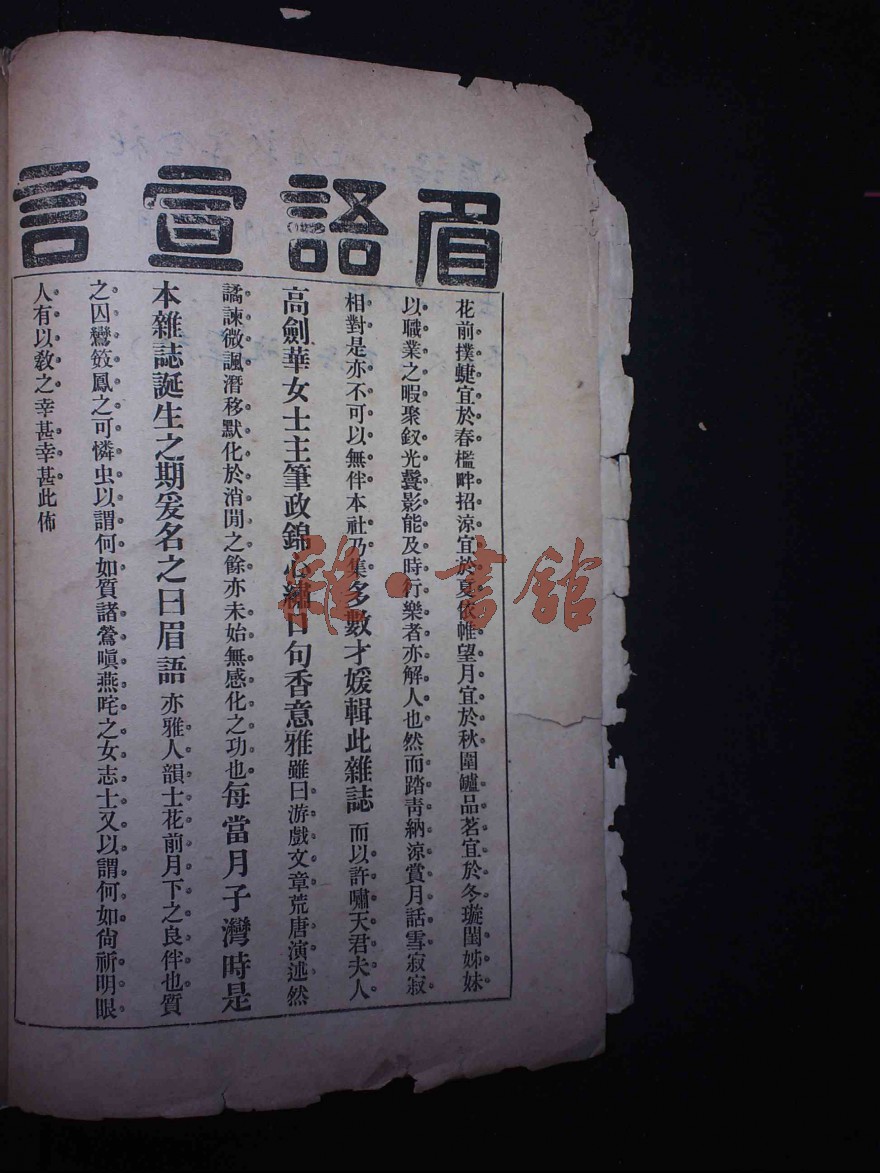 眉語宣言
花前撲蜨宜於春檻畔招涼宜於夏依帷望月宜於秋圍鑪品茗宜於冬璇閨姊妹
以職業之暇聚釵光鬢影能及時行樂者亦解人也然而踏靑納涼賞月話雪寂寂
相對是亦不可以無伴本社乃集多數才媛輯此雜誌而以許嘯天君夫人
高劍華女士主筆政錦心繡口句香意雅雖曰游戲文章荒唐演述然
譎諫微諷潛移默化於消閒之餘亦未始無感化之功也每當月子灣時是
本雜誌誕生之期爰名之曰眉語亦雅人韻士花前月下之良伴也質
之囚鸞笯鳳之可憐虫以謂何如質諸鶯嗔燕咤之女志士又以謂何如尙祈明眼
人有以敎之幸甚幸甚此佈
雜·書館